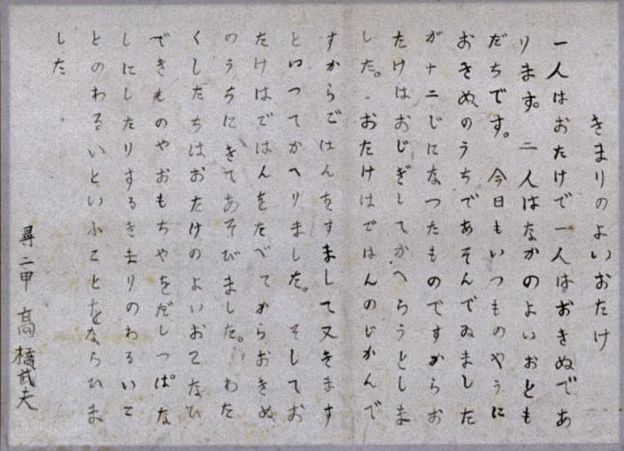 きまりのよいおたけ
一人はおたけで一人はおきぬであ
ります。二人はなかのよいおとも
だちです。今日もいつものやうに
おきぬのうちであそんでゐました
が十二じになつたものですからお
たけはおじぎしてかへらうとしま
した。おたけはごはんのじかんで
すからごはんをすまして又きます
といつてかへりました。そしてお
たけはごはんをたべてからおきぬ
のうちにきてあそびました。わた
くしたちはおたけのよいおこなひ
できものやおもちやをだしつぱな
しにしたりするきまりのわるいこ
とのわるいといふことをならひま
した
尋二甲 高橋武夫